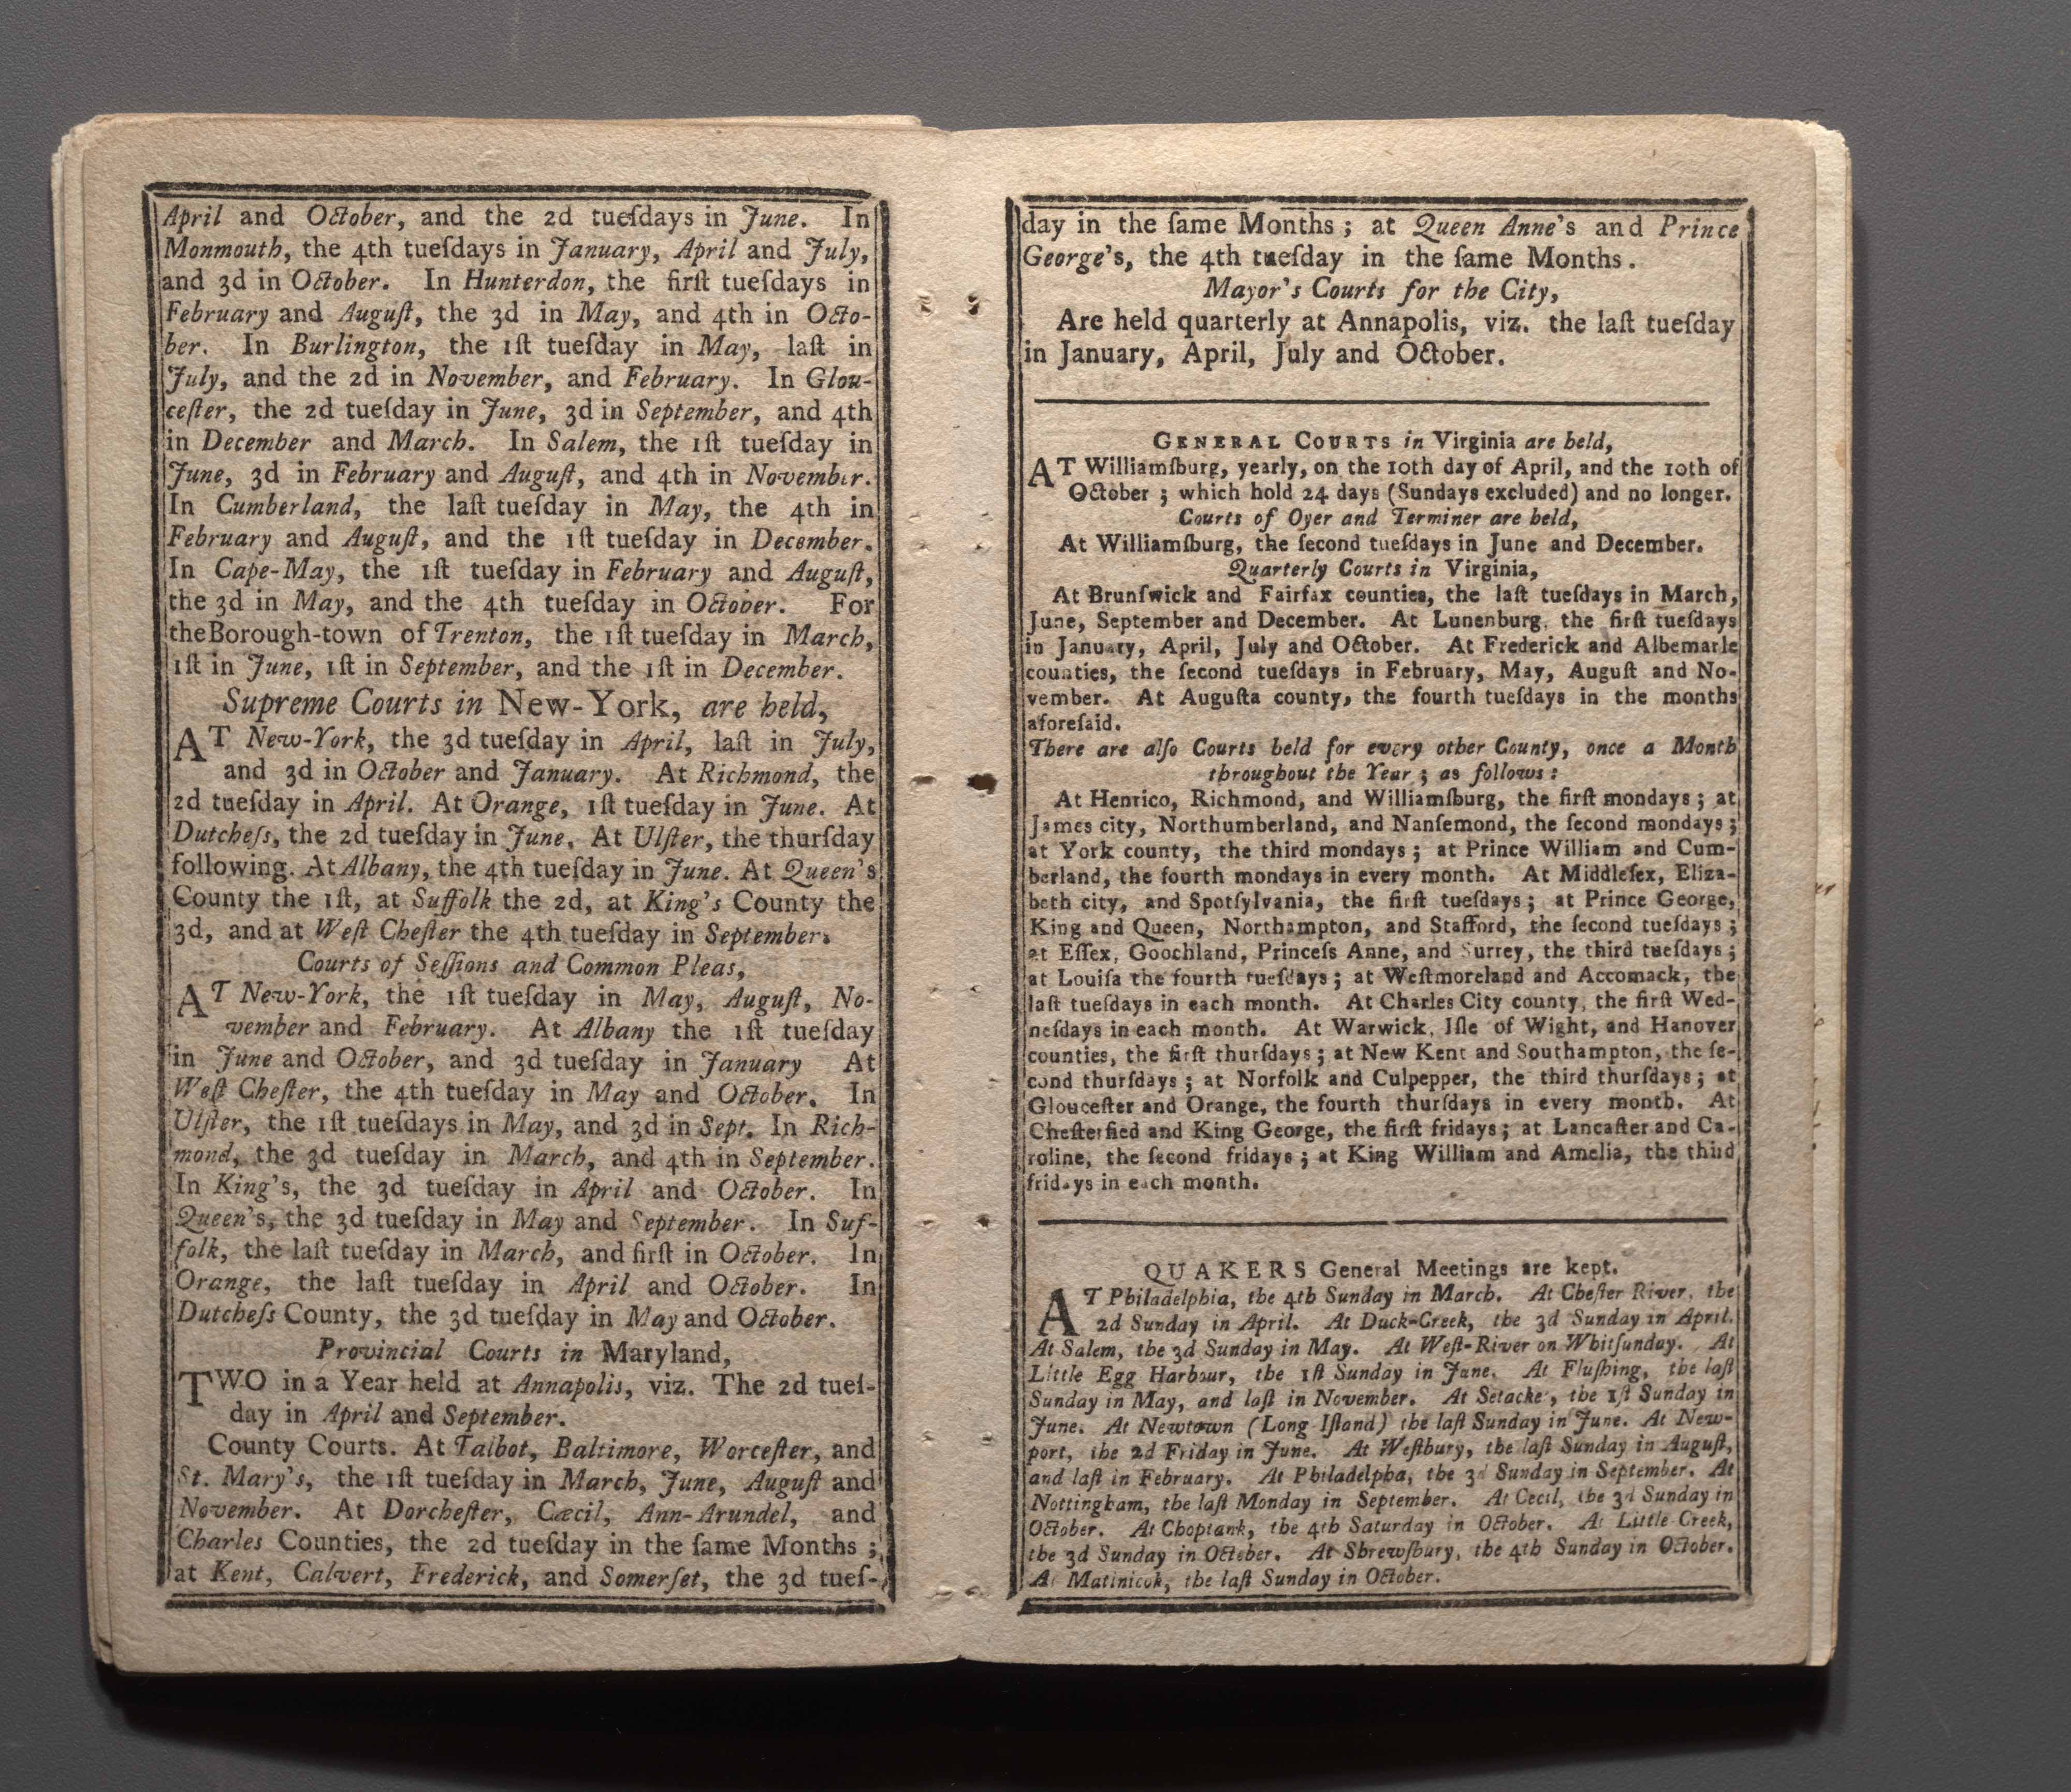 April and October, and the 2d tueſdays in June. In
Monmouth, the 4th tueſdays in January, April and July,
and 3d in October. In Hunterdon, the firſt tueſdays in
February and Auguſt, the 3d in May, and 4th in Octo-
ber. In Burlington, the 1ſt tueſday in May, laſt in
July, and the 2d in November, and February. In Glou-
ceſter, the 2d tueſday in June, 3d in September, and 4th
in December and March. In Salem, the 1ſt tueſday in
June, 3d in February and Auguſt, and 4th in November.
In Cumberland, the laſt tueſday in May, the 4th in
February and Auguſt, and the 1ſt tueſday in December.
In Cape-May, the 1ſt tueſday in February and Auguſt,
the 3d in May, and the 4th tueſday in October. For
theBorough-town of Trenton, the 1ſt tueſday in March,
1ſt in June, 1ſt in September, and the 1ſt in December.
Supreme Courts in New-York, are held,
AT New-York, the 3d tueſday in April, laſt in July,
and 3d in October and January. At Richmond, the
2d tueſday in April. At Orange, 1ſt tueſday in June. At
Dutcheſs, the 2d tueſday in June. At Ulſter, the thurſday
following. At Albany, the 4th tueſday in June. At Queen's
County the 1ſt, at Suffolk the 2d, at King's County the
3d, and at Weſt Cheſter the 4th tueſday in September.
Courts of Seſſions and Common Pleas,
AT New-York, the 1ſt tueſday in May, Auguſt, No-
vember and February. At Albany the 1ſt tueſday
in June and October, and 3d tueſday in January At
Weſt Cheſter, the 4th tueſday in May and October. In
Ulſter, the 1ſt tueſdays in May, and 3d in Sept. In Rich-
mond, the 3d tueſday in March, and 4th in September.
In King's, the 3d tueſday in April and October. In
Queen's, the 3d tueſday in May and September. In Suf-
folk, the laſt tueſday in March, and firſt in October. In
Orange, the laſt tueſday in April and October. In
Dutcheſs County, the 3d tueſday in May and October.
Provincial Courts in Maryland,
TWO in a Year held at Annapolis, viz. The 2d tueſ-
day in April and September.
County Courts. At Talbot, Baltimore, Worceſter, and
St. Mary's, the 1ſt tueſday in March, June, Auguſt and
November. At Dorcheſter, Cæcil, Ann-Arundel, and
Charles Counties, the 2d tueſday in the ſame Months;
at Kent, Calvert, Frederick, and Somerſet, the 3d tueſ-
day in the ſame Months; at Queen Anne's and Prince
George's, the 4th tueſday in the ſame Months.
Mayor's Courts for the City,
Are held quarterly at Annapolis, viz. the laſt tueſday
in January, April, July and October.
GENERAL COURTS in Virginia are held,
AT Williamſburg, yearly, on the 10th day of April, and the 10th of
October; which hold 24 days (Sundays excluded) and no longer.
Courts of Oyer and Terminer are held,
At Williamſburg, the ſecond tueſdays in June and December.
Quarterly Courts in Virginia,
At Brunſwick and Fairfax counties, the laſt tueſdays in March,
June, September and December. At Lunenburg, the firſt tueſdays
in January, April, July and October. At Frederick and Albemarle
counties, the ſecond tueſdays in February, May, Auguſt and No-
vember. At Auguſta county, the fourth tueſdays in the months
aforeſaid.
There are alſo Courts held for every other County, once a Month
throughout the Year; as follows:
At Henrico, Richmond, and Williamſburg, the firſt mondays; at
James city, Northumberland, and Nanſemond, the ſecond mondays;
at York county, the third mondays; at Prince William and Cum-
berland, the fourth mondays in every month. At Middleſex, Eliza-
beth city, and Spotſylvania, the firſt tueſdays; at Prince George,
King and Queen, Northampton, and Stafford, the ſecond tueſdays;
at Eſſex, Goochland, Princeſs Anne, and Surrey, the third tueſdays;
at Louiſa the fourth tueſdays; at Weſtmoreland and Accomack, the
laſt tueſdays in each month. At Charles City county, the firſt Wed-
neſdays in each month. At Warwick, Iſle of Wight, and Hanover
counties, the firſt thurſdays; at New Kent and Southampton, the ſe-
cond thurſdays; at Norfolk and Culpepper, the third thurſdays; at
Glouceſter and Orange, the fourth thurſdays in every month. At
Cheſterfied and King George, the firſt fridays; at Lancaſter and Ca-
roline, the ſecond fridays; at King William and Amelia, the third
fridays in each month.
QUAKERS General Meetings are kept.
AT Philadelphia, the 4th Sunday in March. At Cheſter River, the
2d Sunday in April. At Duck-Creek, the 3d Sunday in April.
At Salem, the 3d Sunday in May. At Weſt-River on Whitſunday. At
Little Egg Harbour, the 1ſt Sunday in June. At Fluſhing, the laſt
Sunday in May, and laſt in November. At Setacke, the 1ſt Sunday in
June. At Newtown (Long Iſland) the laſt Sunday in June. At New-
port, the 2d Friday in June. At Weſtbury, the laſt Sunday in Auguſt,
and laſt in February. At Philadelpha, the 3d Sunday in September. At
Nottingham, the laſt Monday in September. At Cecil, the 3d Sunday in
October. At Choptank, the 4th Saturday in October. At Little Creek,
the 3d Sunday in October. At Shrewſbury, the 4th Sunday in October.
At Matinicok, the laſt Sunday in October.